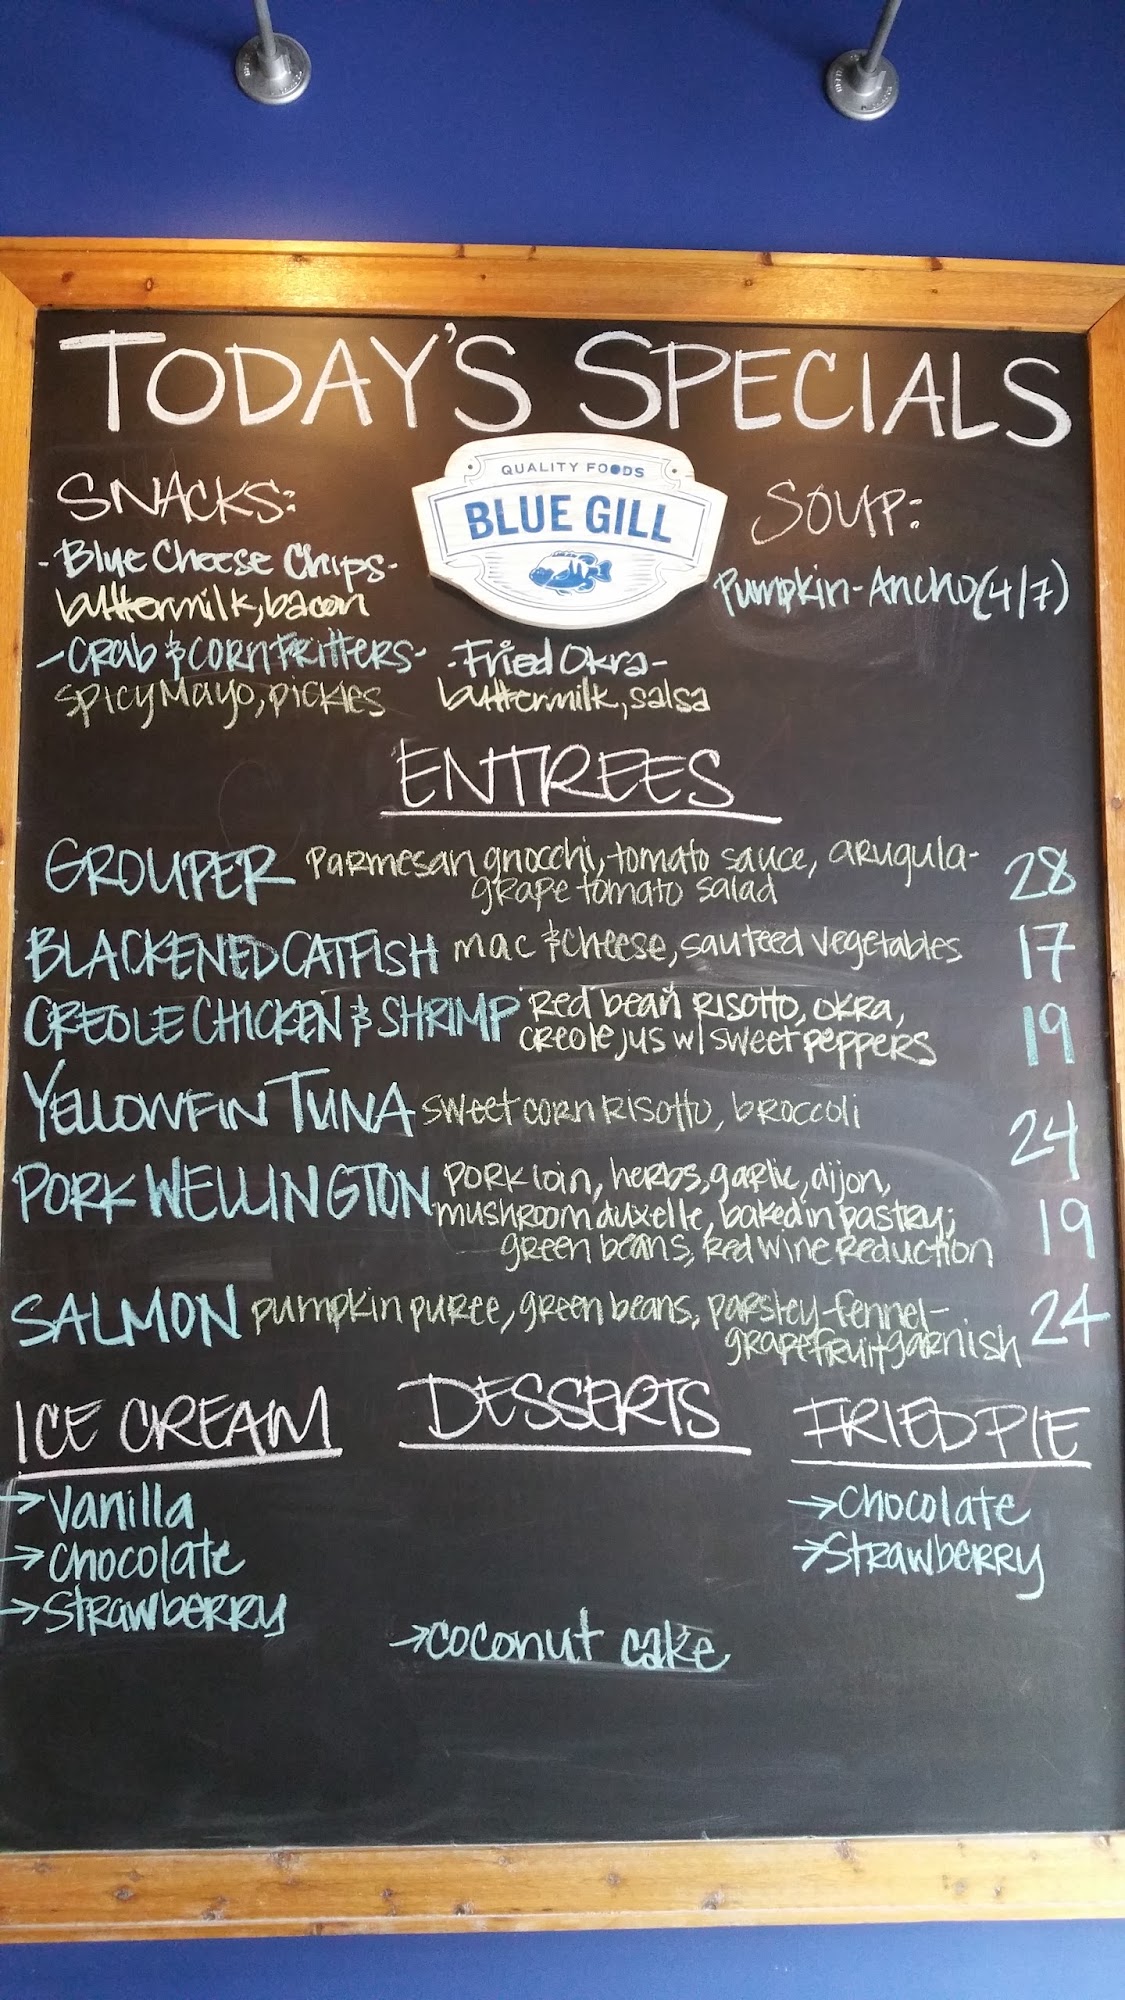 TODAY'S SPECIALS
QUALITY FOODS
BLUE GILL
SNACKS:
- Blue Cheese Chips -
buttermilk, bacon
- CRab & CORN FRitters -
SpicyMayo, pickles
- Fried Okra -
buttermilk, salsa
SOUP:
Pumpkin - Ancho (4/7)
ENTREES
GROUPER parmesan gnocchi, tomato sauce, arugula-
grape tomato salad 28
BLACKENED CATFISH mac & cheese, sauteed vegetables 17
CREOLE CHICKEN & SHRIMP Red bean Risotto, okra,
creole jus w/ sweet peppers 19
YELLOWFIN TUNA sweet corn Risotto, broccoli 24
PORK WELLINGTON pork loin, herbs, garlic, dijon,
mushroom duxelle, baked in pastry;
green beans, Red wine Reduction 19
SALMON pumpkin puree, green beans, parsley-fennel-
grapefruit garnish 24
ICE CREAM
→ Vanilla
→ Chocolate
→ Strawberry
DESSERTS
→ coconut cake
FRIED PIE
→ Chocolate
→ Strawberry